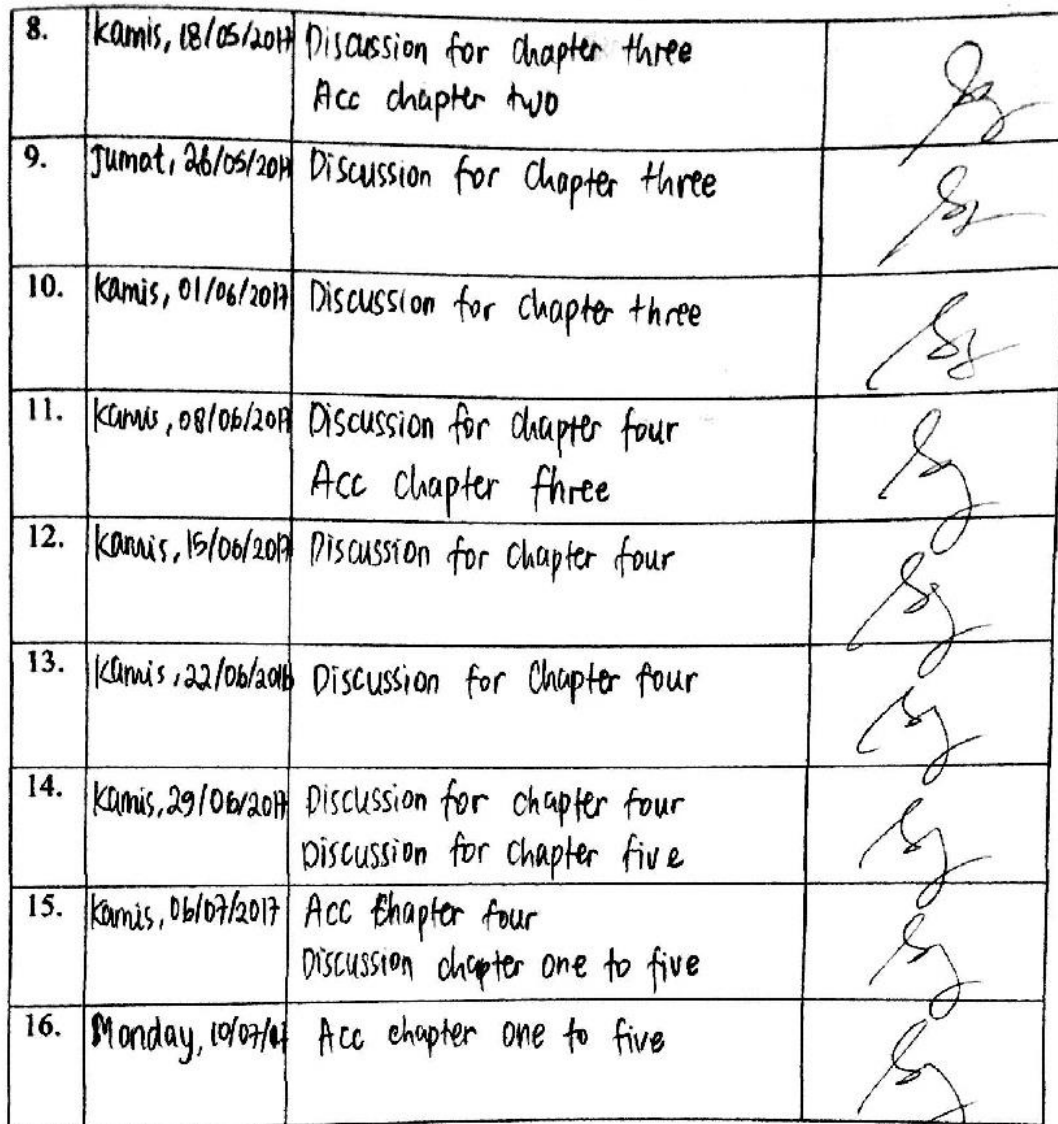 8. Kamis, 18/05/2017 Discussion for chapter three
Acc chapter two
9. Jumat, 26/05/2017 Discussion for Chapter three
10. Kamis, 01/06/2017 Discussion for chapter three
11. Kamis, 08/06/2017 Discussion for chapter four
Acc chapter three
12. Kamis, 15/06/2017 Discussion for chapter four
13. Kamis, 22/06/2016 Discussion for Chapter four
14. Kamis, 29/06/2017 Discussion for chapter four
Discussion for chapter five
15. Kamis, 06/07/2017 Acc Chapter four
Discussion chapter one to five
16. Monday, 10/07/17 Acc chapter one to five